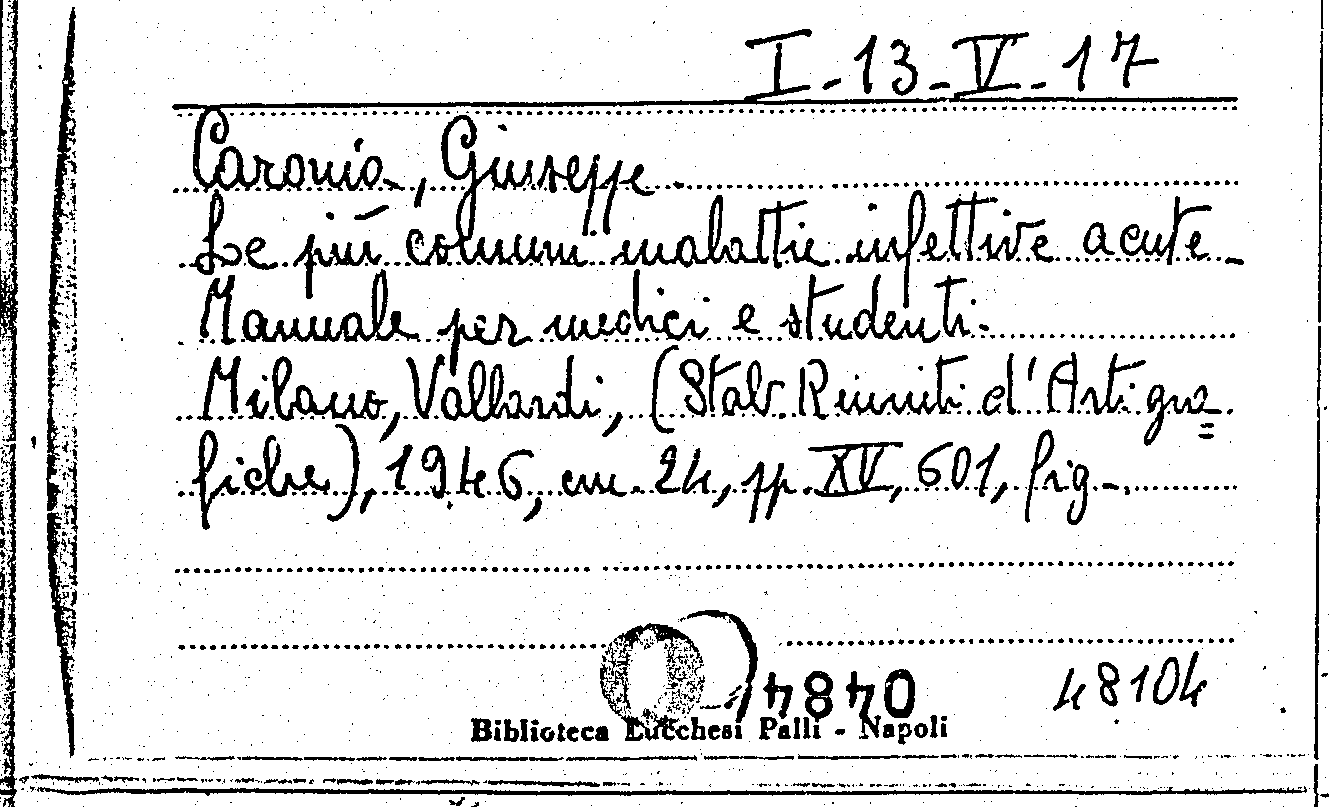 I-13-V-17
Caronia, Giuseppe.
Le più comuni malattie infettive acute_
Manuale per medici e studenti.
Milano, Vallardi, (Stab. Riuniti d'Arti gra=
fiche), 1946, cm. 24, pp. XV, 601, fig.
48104
Biblioteca Lucchesi Palli - Napoli